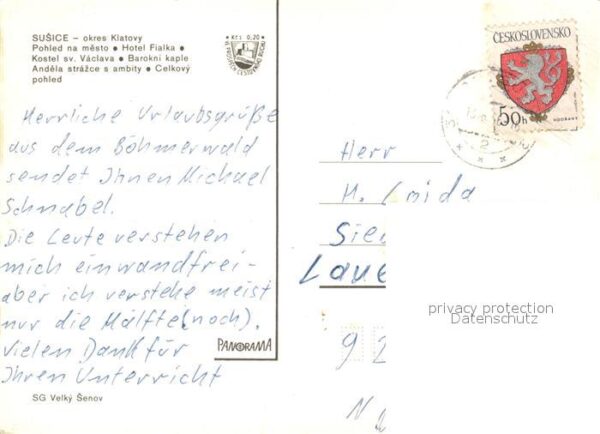 SUŠICE – okres Klatovy
Pohled na město • Hotel Fialka •
Kostel sv. Václava • Barokní kaple
Anděla strážce s ambity • Celkový
pohled
Kčs 0,20
ČESKOSLOVENSKO
50h
VODŇANY
Herrliche Urlaubsgrüße
aus dem Böhmerwald
sendet Ihnen Michael
Schnabel.
Die Leute verstehen
mich einwandfrei-
aber ich verstehe meist
nur die Hälfte(noch).
Vielen Dank für
Ihren Unterricht
PANORAMA
SG Velký Šenov
Herr
M.
Sie
Laue
privacy protection
Datenschutz
92
N